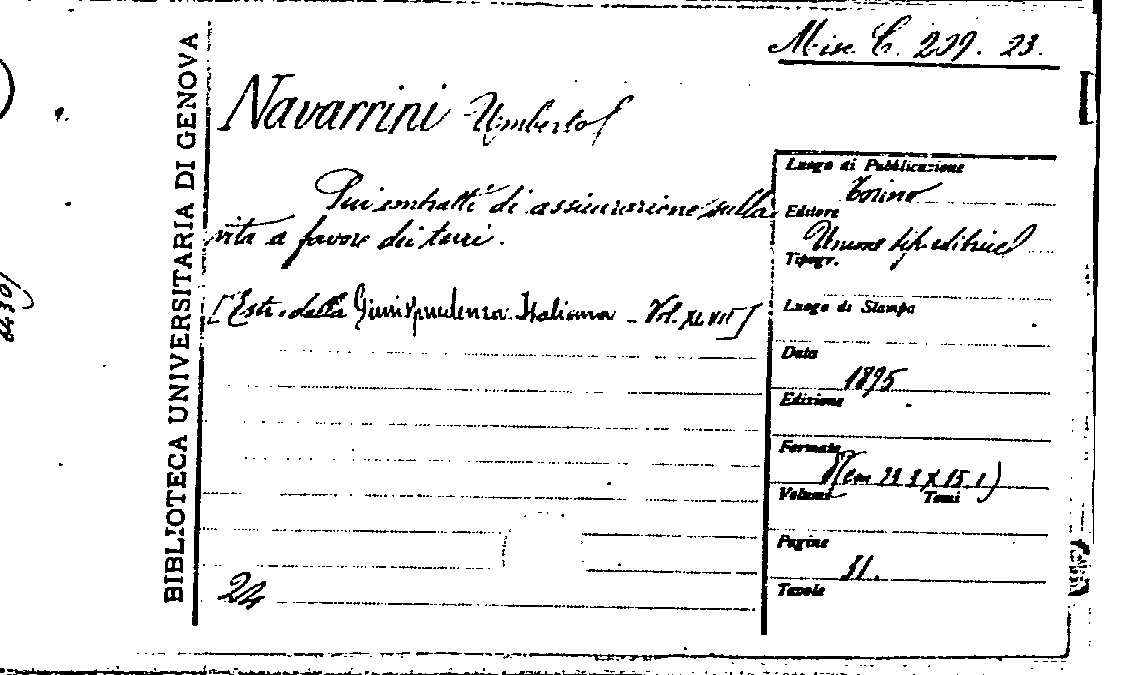 Misc. C. 239. 23.
BIBLIOTECA UNIVERSITARIA DI GENOVA
Navarrini Umberto
Sui contratti di assicurazione sulla
vita a favore dei terzi.
[Estr. dalla Giurisprudenza Italiana - Vol. XLVII]
24
Luogo di Pubblicazione
Torino
Editore
Unione tip. editrice
Tipogr.
Luogo di Stampa
Data
1895
Edizione
Formato
(cm 23.3 X 15.1)
Volumi Tomi
Pagine
31.
Tavole